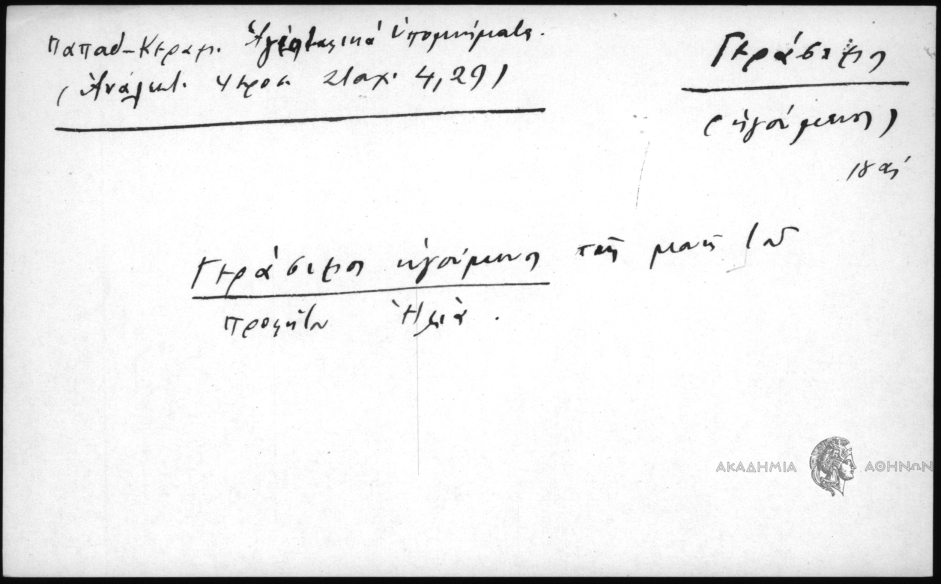 Παπαδ-Κεραμ. Ἁγιοταφικὰ Ὑπομνήματα.
(Ἀνάλεκτ. Ἱεροσ. Σταχ. 4, 29)
Γεράσιμος
(ἡγούμενος)
ιγ αἰ
Γεράσιμος ἡγούμενος τῆς μονῆς τοῦ
προφήτου Ἠλία.
ΑΚΑΔΗΜΙΑ ΑΘΗΝΩΝ